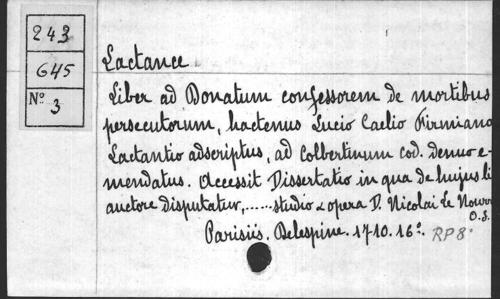 243
645
Nº 3
Lactance
Liber ad Donatum confessorem de mortibus
persecutorum, hactenus Lucio Caelio Firmiano
Lactantio adscriptus, ad Colbertinum cod. denuo e-
mendatus. Accessit Dissertatio in qua de hujus li
auctore disputatur,......studio & opera D. Nicolai Le Nourr
O.S.
Parisiis. Delespine. 1710. 16º. RP8.